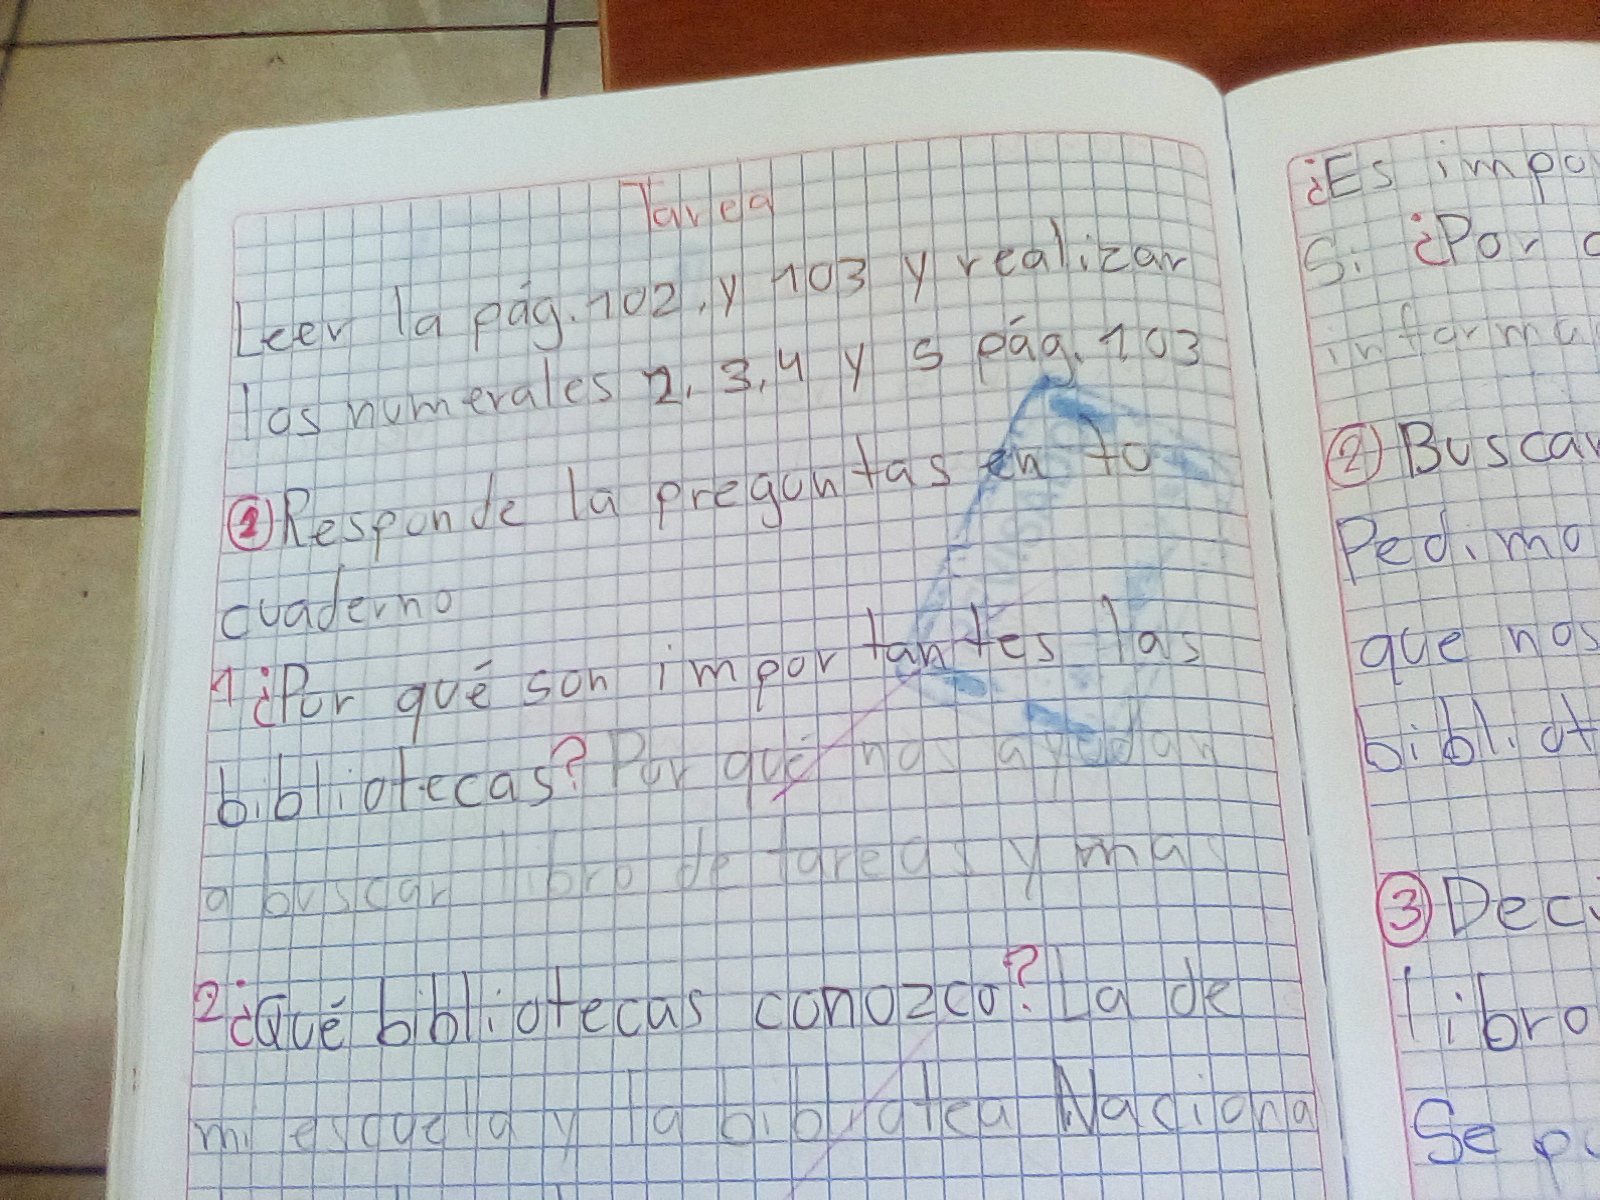 Tarea
Leer la pág. 102, y 103 y realizar
los numerales 2, 3, 4 y 5 pág. 103
① Responde la preguntas en tu
cuaderno
1 ¿Por qué son importantes las
bibliotecas? Por que nos ayudan
a buscar libro de tareas y mas
2 ¿Qué bibliotecas conozco? La de
mi escuela y la
Naciona
¿Es impo
Si ¿Por
informa
② Buscar
Pedimo
que nos
bibliot
③ Deci
libro
Se pu